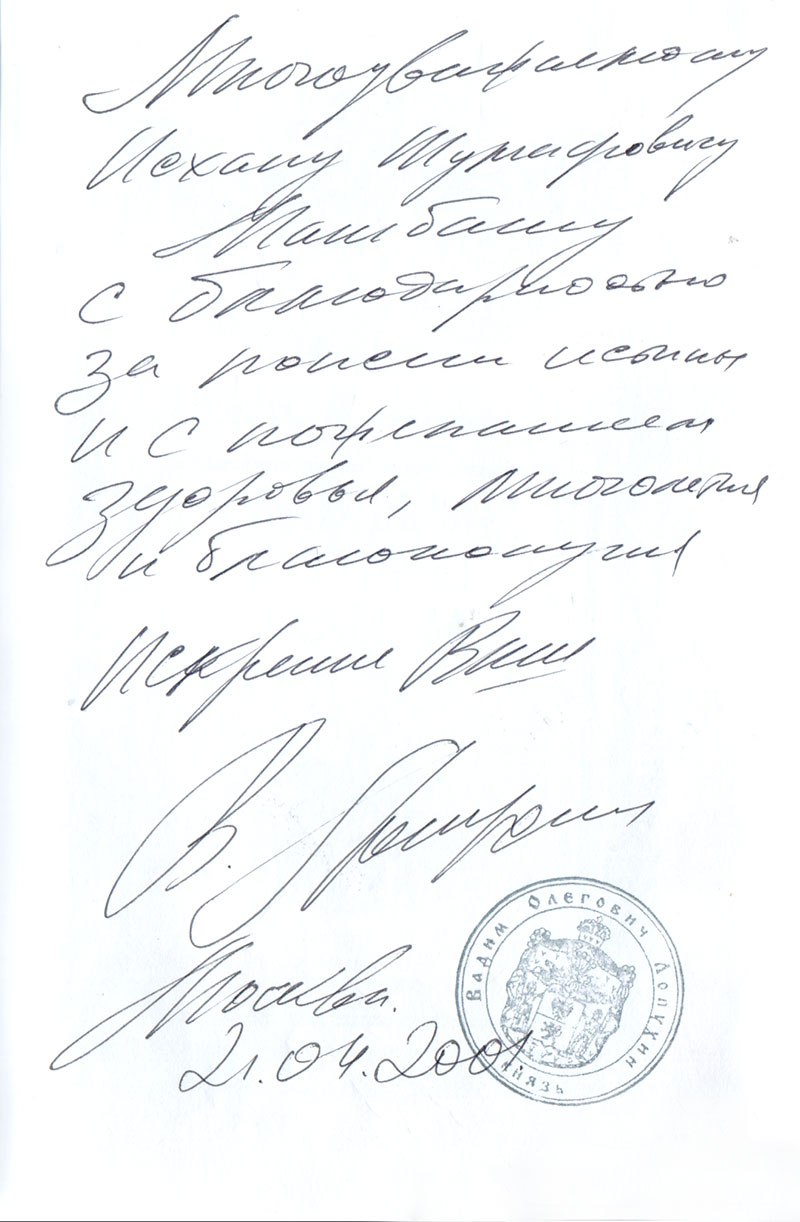 Многоуважаемому
Исхаку Шумафовичу
Машбашу
с благодарностью
за
и с пожеланием
здоровья, многолетия
и благополучия
Искренне Ваш
В. Лопухин
Москва.
21.04.2001.
Вадим Олегович Лопухин
князь